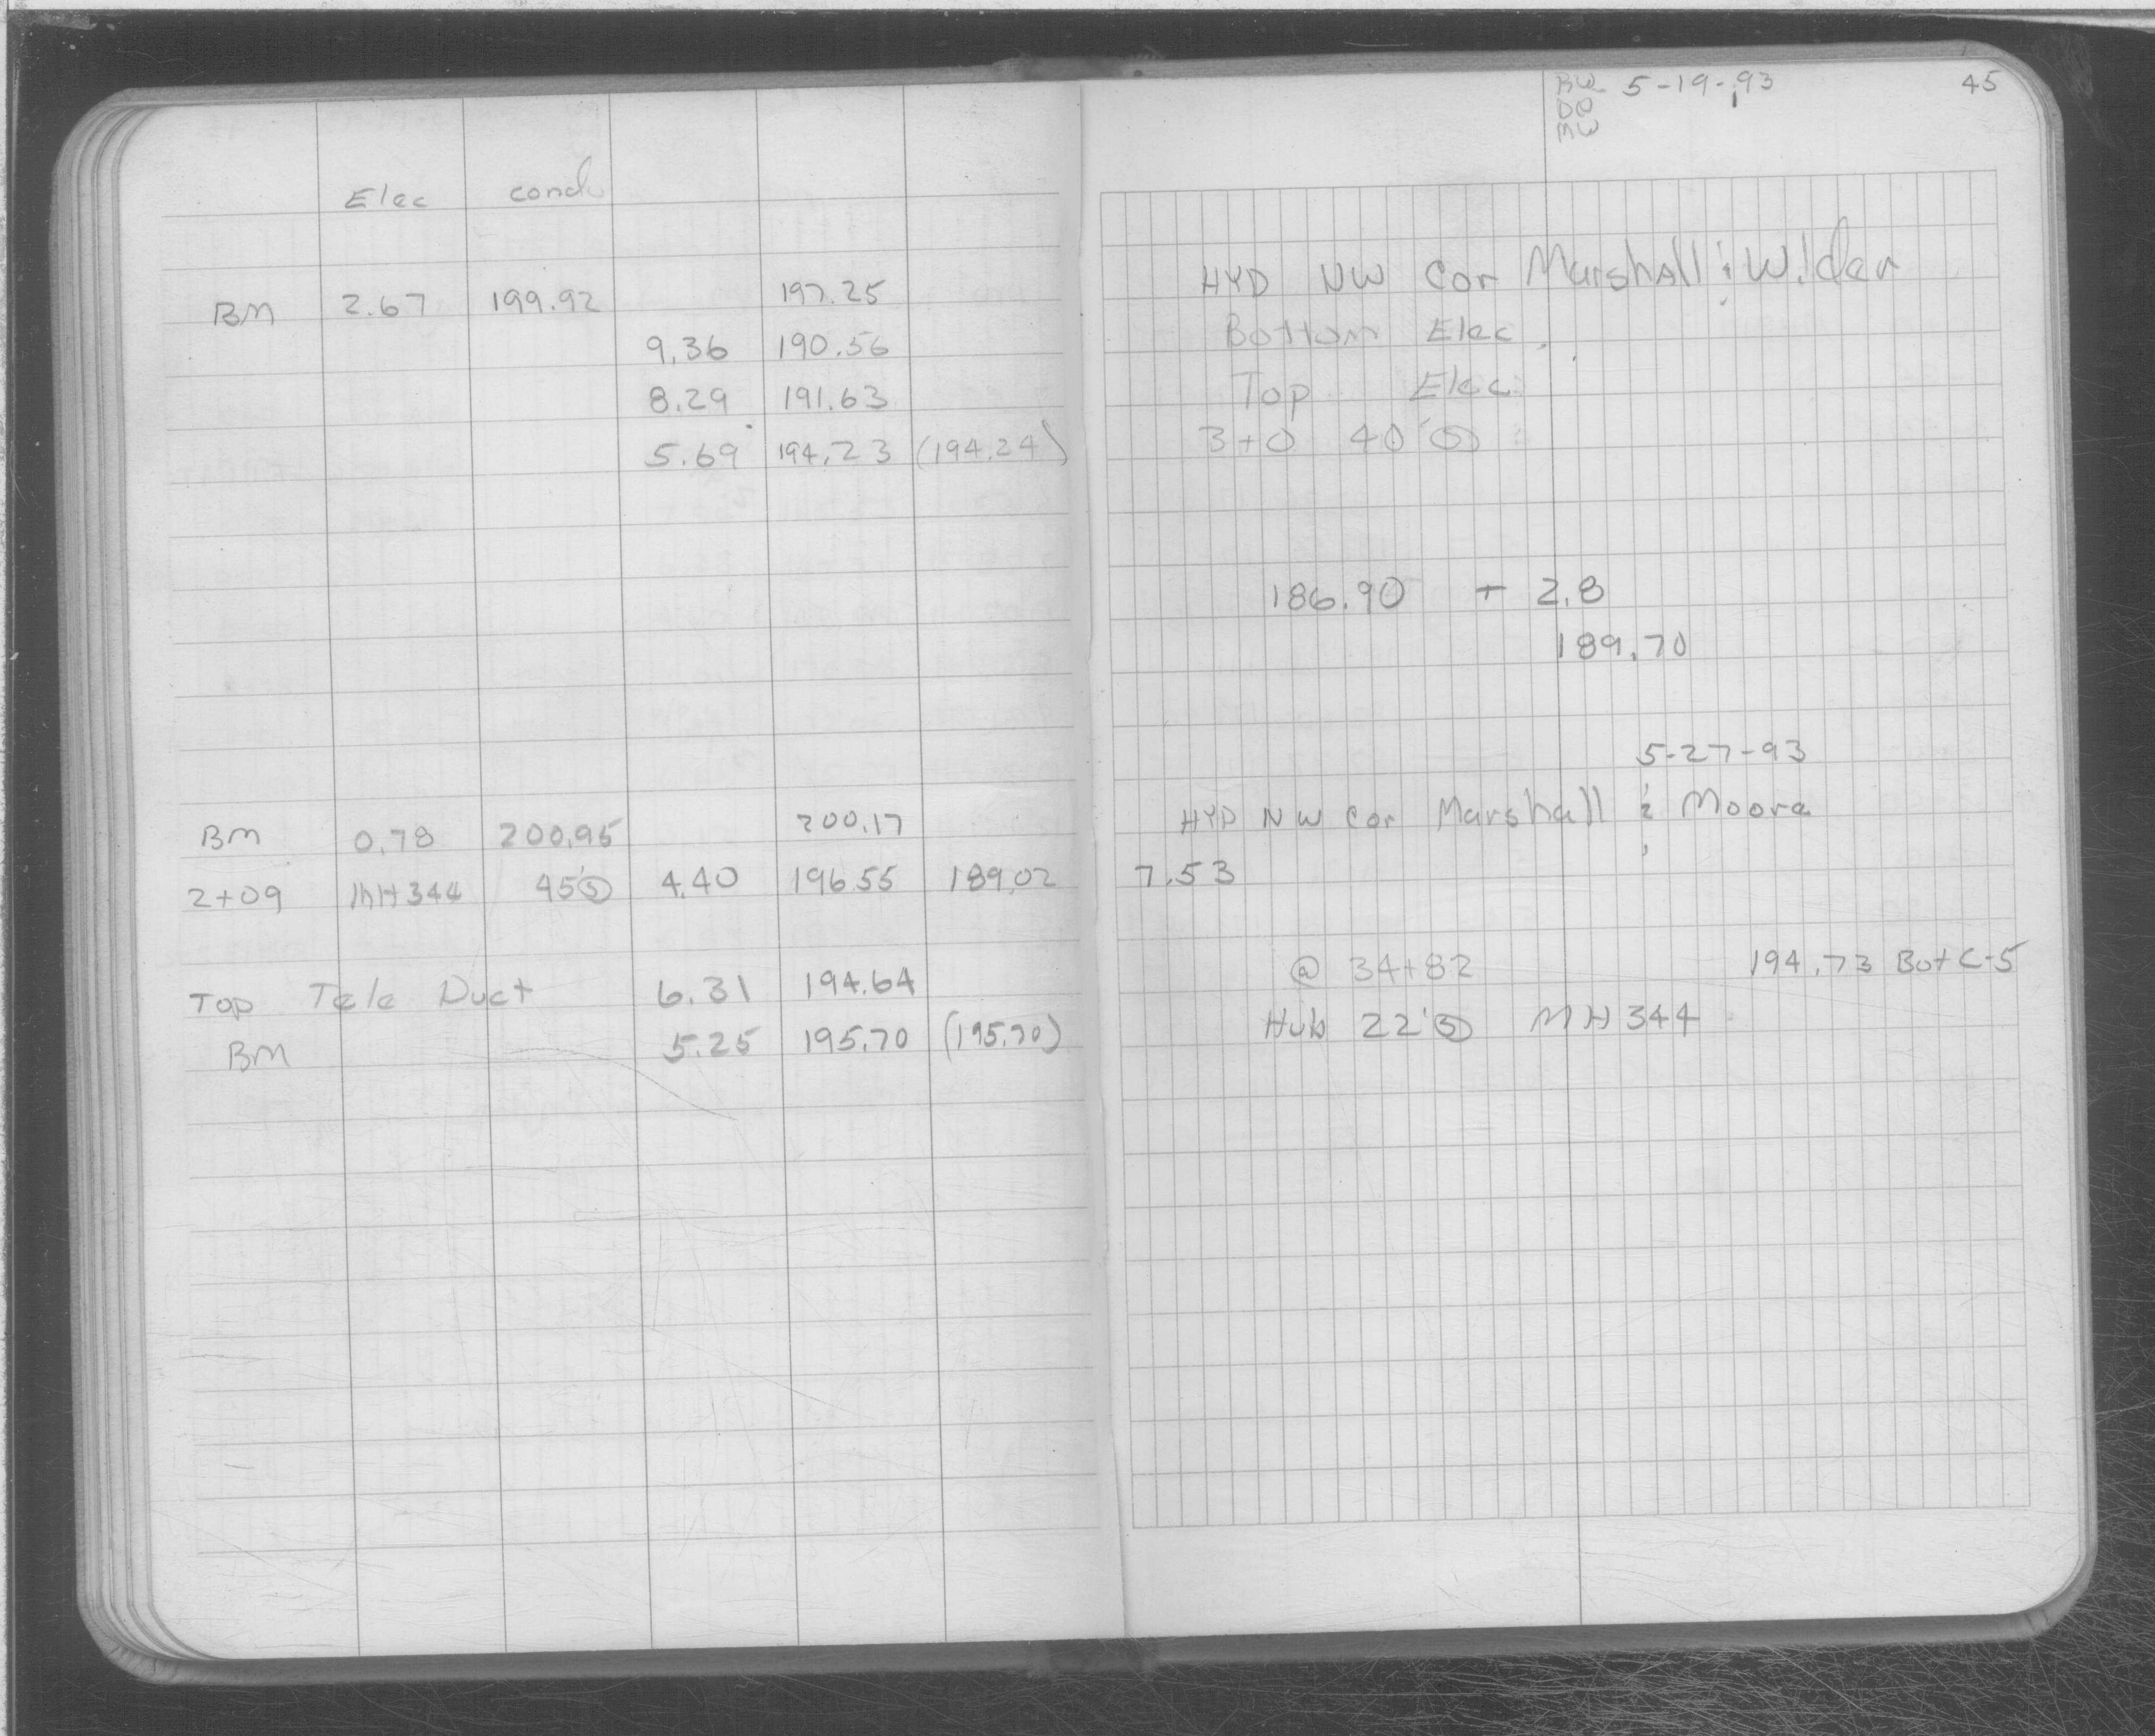 5-19-93 45
Elec
HYD NW Cor Marshall & Wilder
BM 2.67 199.92 197.25
9.36 190.56 Bottom Elec
8.29 191.63 Top Elec
5.69 194.23 (194.24) 3+0 40' Ⓢ
186.90 + 2.8
189.70
5-27-93
BM 0.78 200.95 200.17 HYD NW Cor Marshall & Moore
2+09 MH344 45' Ⓢ 4.40 196.55 189.02 7.53
Top Tele Duct 6.31 194.64 @ 34+82 194.73 Bot C-5
BM 5.25 195.70 (195.70) Hub 22' Ⓢ MH 344